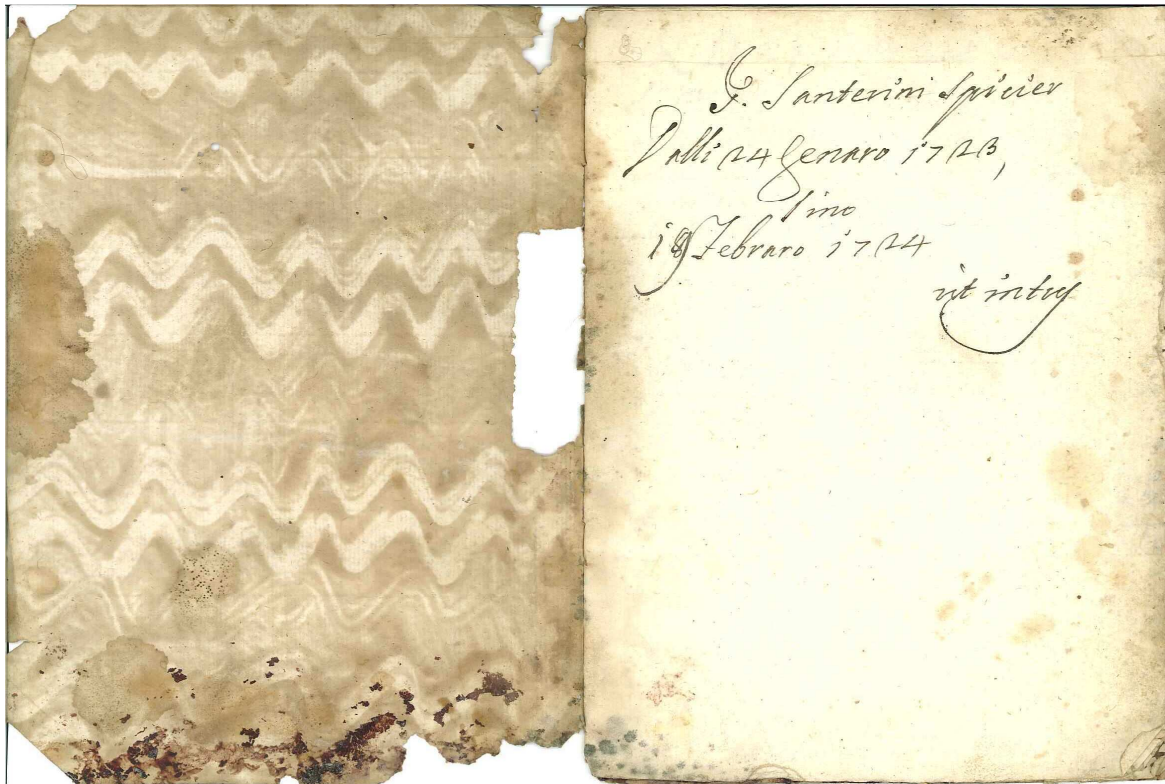 G. Santerini Spicier
Dalli 24 Genaro 1723,
sino
18 Febraro 1724
ut intus